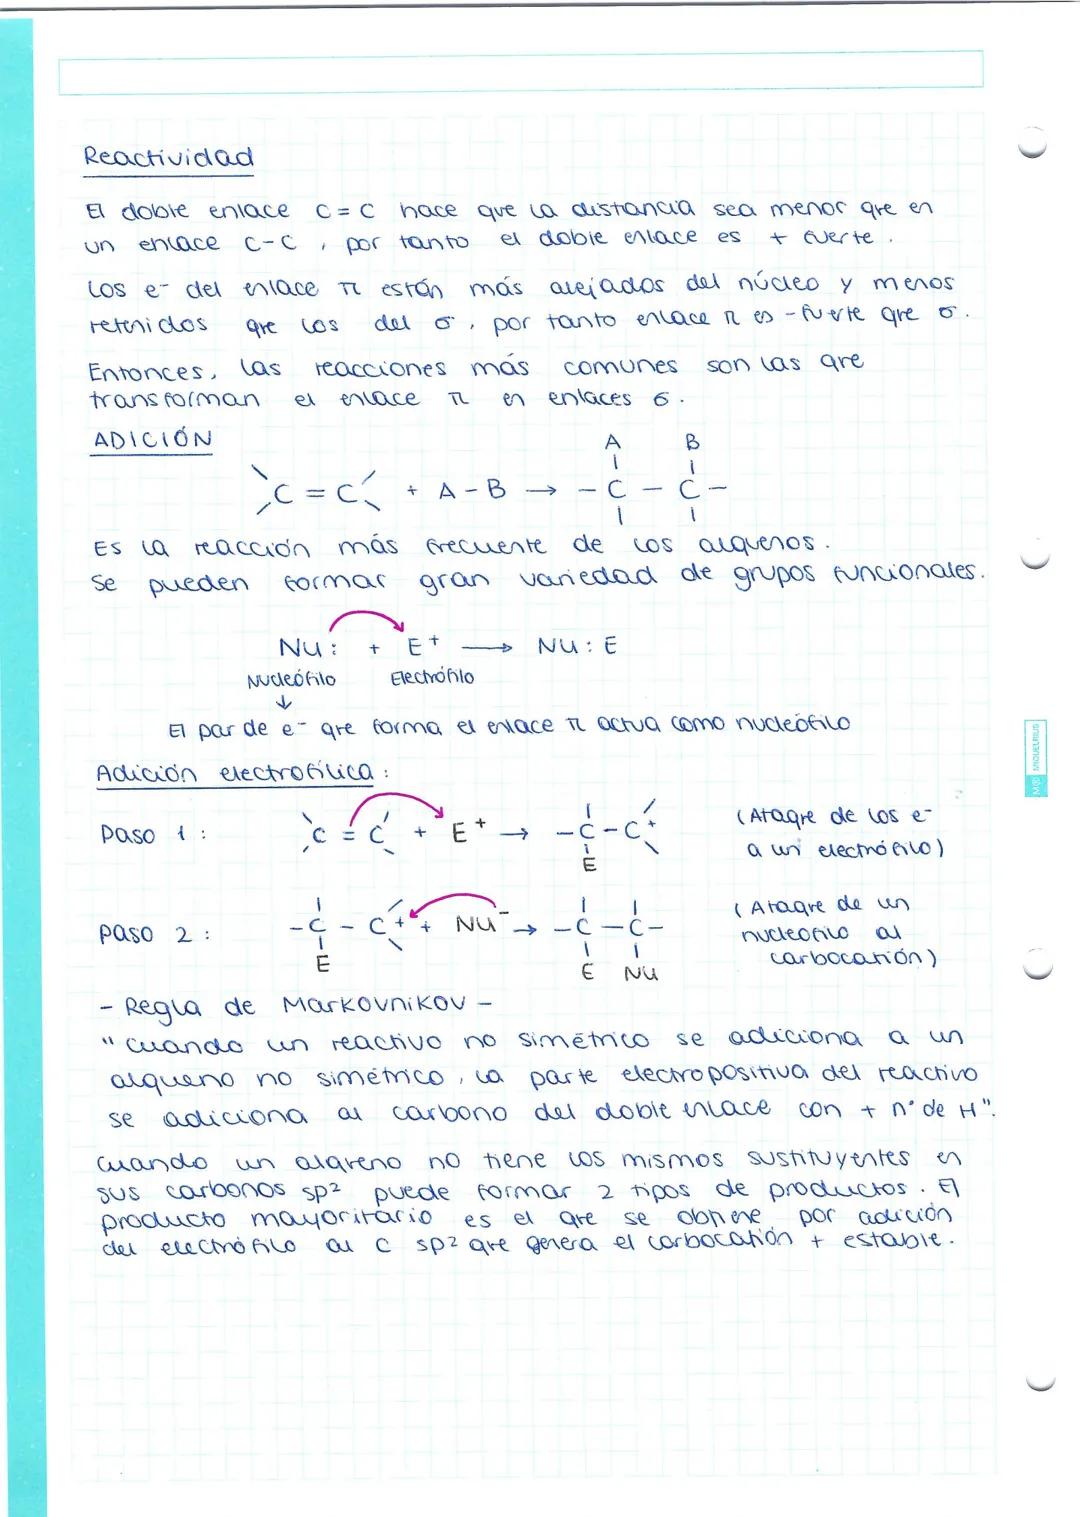 Reactividad
El doble enlace C=C hace que la distancia sea menor que en
un enlace C-C, por tanto el doble enlace es + fuerte.
Los e⁻ del enlace π están más alejados del núcleo y menos
retenidos que los del σ, por tanto enlace π es - fuerte que σ.
Entonces, las reacciones más comunes son las que
transforman el enlace π en enlaces σ.
ADICIÓN
A B
C = C + A - B → - C - C -
Es la reacción más frecuente de los alquenos.
Se pueden formar gran variedad de grupos funcionales.
Nu: + E⁺ → Nu : E
Nucleófilo Electrófilo
↓
El par de e⁻ que forma el enlace π actua como nucleófilo
Adición electrofílica:
Paso 1: C = C + E⁺ → -C-C⁺ (Ataque de los e⁻
E a un electrófilo)
Paso 2: -C - C⁺ + Nu⁻ → -C-C- (Ataque de un
nucleofilo al
E E Nu carbocatión)
- Regla de Markovnikov -
"Cuando un reactivo no simétrico se adiciona a un
alqueno no simétrico, la parte electropositiva del reactivo
se adiciona al carbono del doble enlace con + nº de H".
Cuando un alqueno no tiene los mismos sustituyentes en
sus carbonos sp² puede formar 2 tipos de productos. El
producto mayoritario es el que se obtiene por adición
del electrófilo al C sp² que genera el carbocatión + estable.
M® MIQUELRIUS